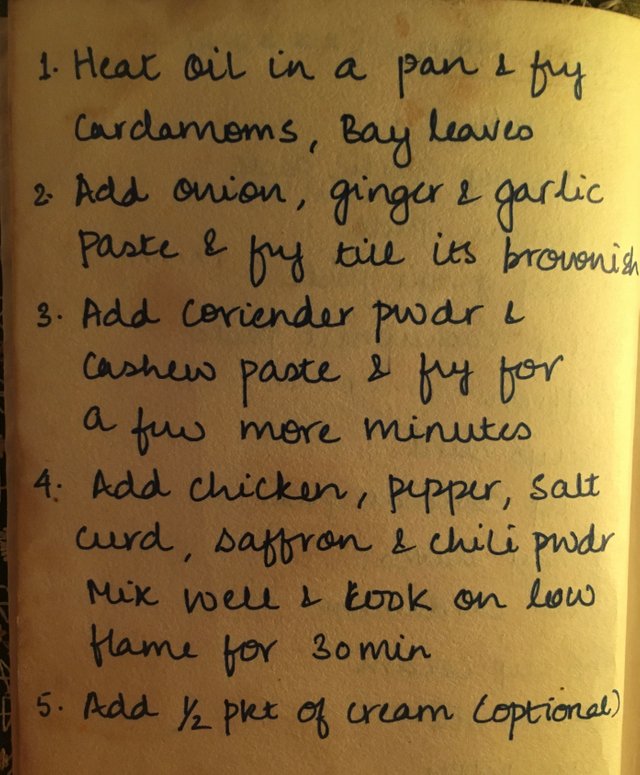 1. Heat oil in a pan & fry
Cardamoms, Bay leaves
2. Add onion, ginger & garlic
Paste & fry till its brownish
3. Add Coriender pwdr &
Cashew paste & fry for
a few more minutes
4. Add chicken, pepper, Salt
Curd, saffron & chili pwdr
Mix well & Cook on low
flame for 30 min
5. Add 1/2 pkt of cream (optional)